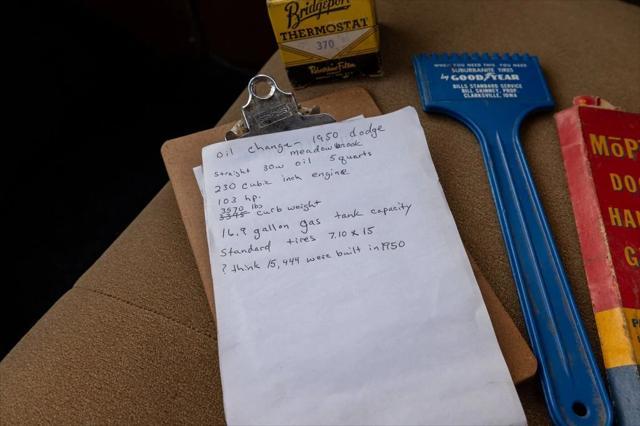 Bridgeport
THERMOSTAT
370
oil change - 1950 dodge
meadowbrook
straight 30w oil 5 quarts
230 cubic inch engine
103 hp.
3570 lbs
3345 curb weight
16.9 gallon gas tank capacity
Standard tires 7.10 x 15
? think 15,444 were built in 1950
WHEN YOU NEED THIS, YOU NEED
SUBURBANITE TIRES
by GOODYEAR
BILLS STANDARD SERVICE
BILL SKINNEY, PROP
CLARKSVILLE, IOWA
MoP
DO
HA
G